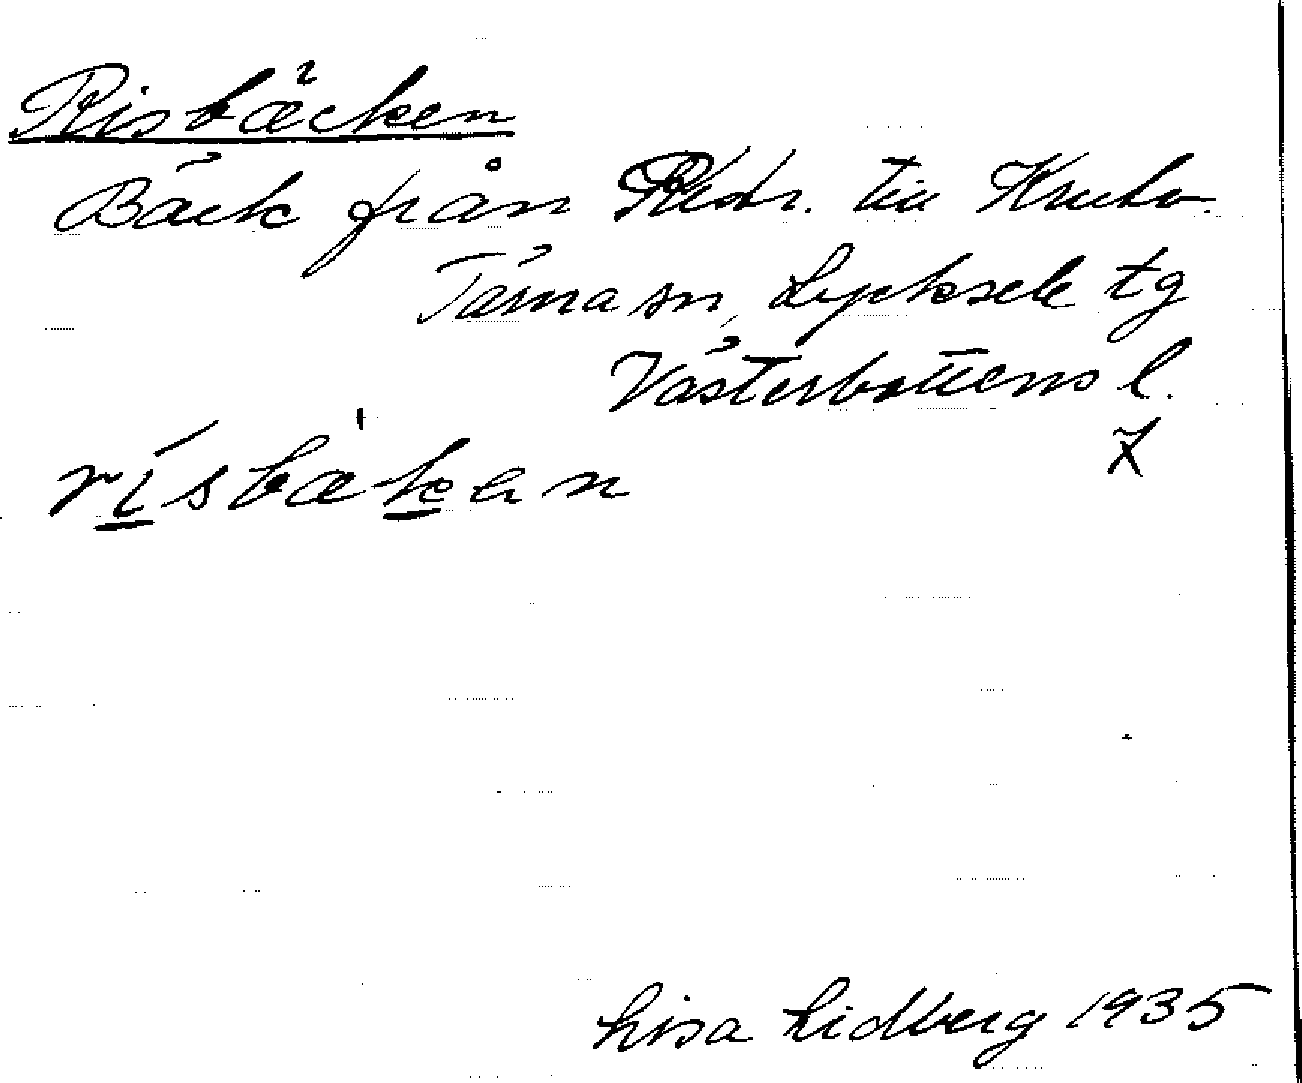 Risbäcken
Bäck från till
Tärna sn, Lycksele tg
Västerbottens l.
X
rísbäkan
Lisa Lidberg 1935